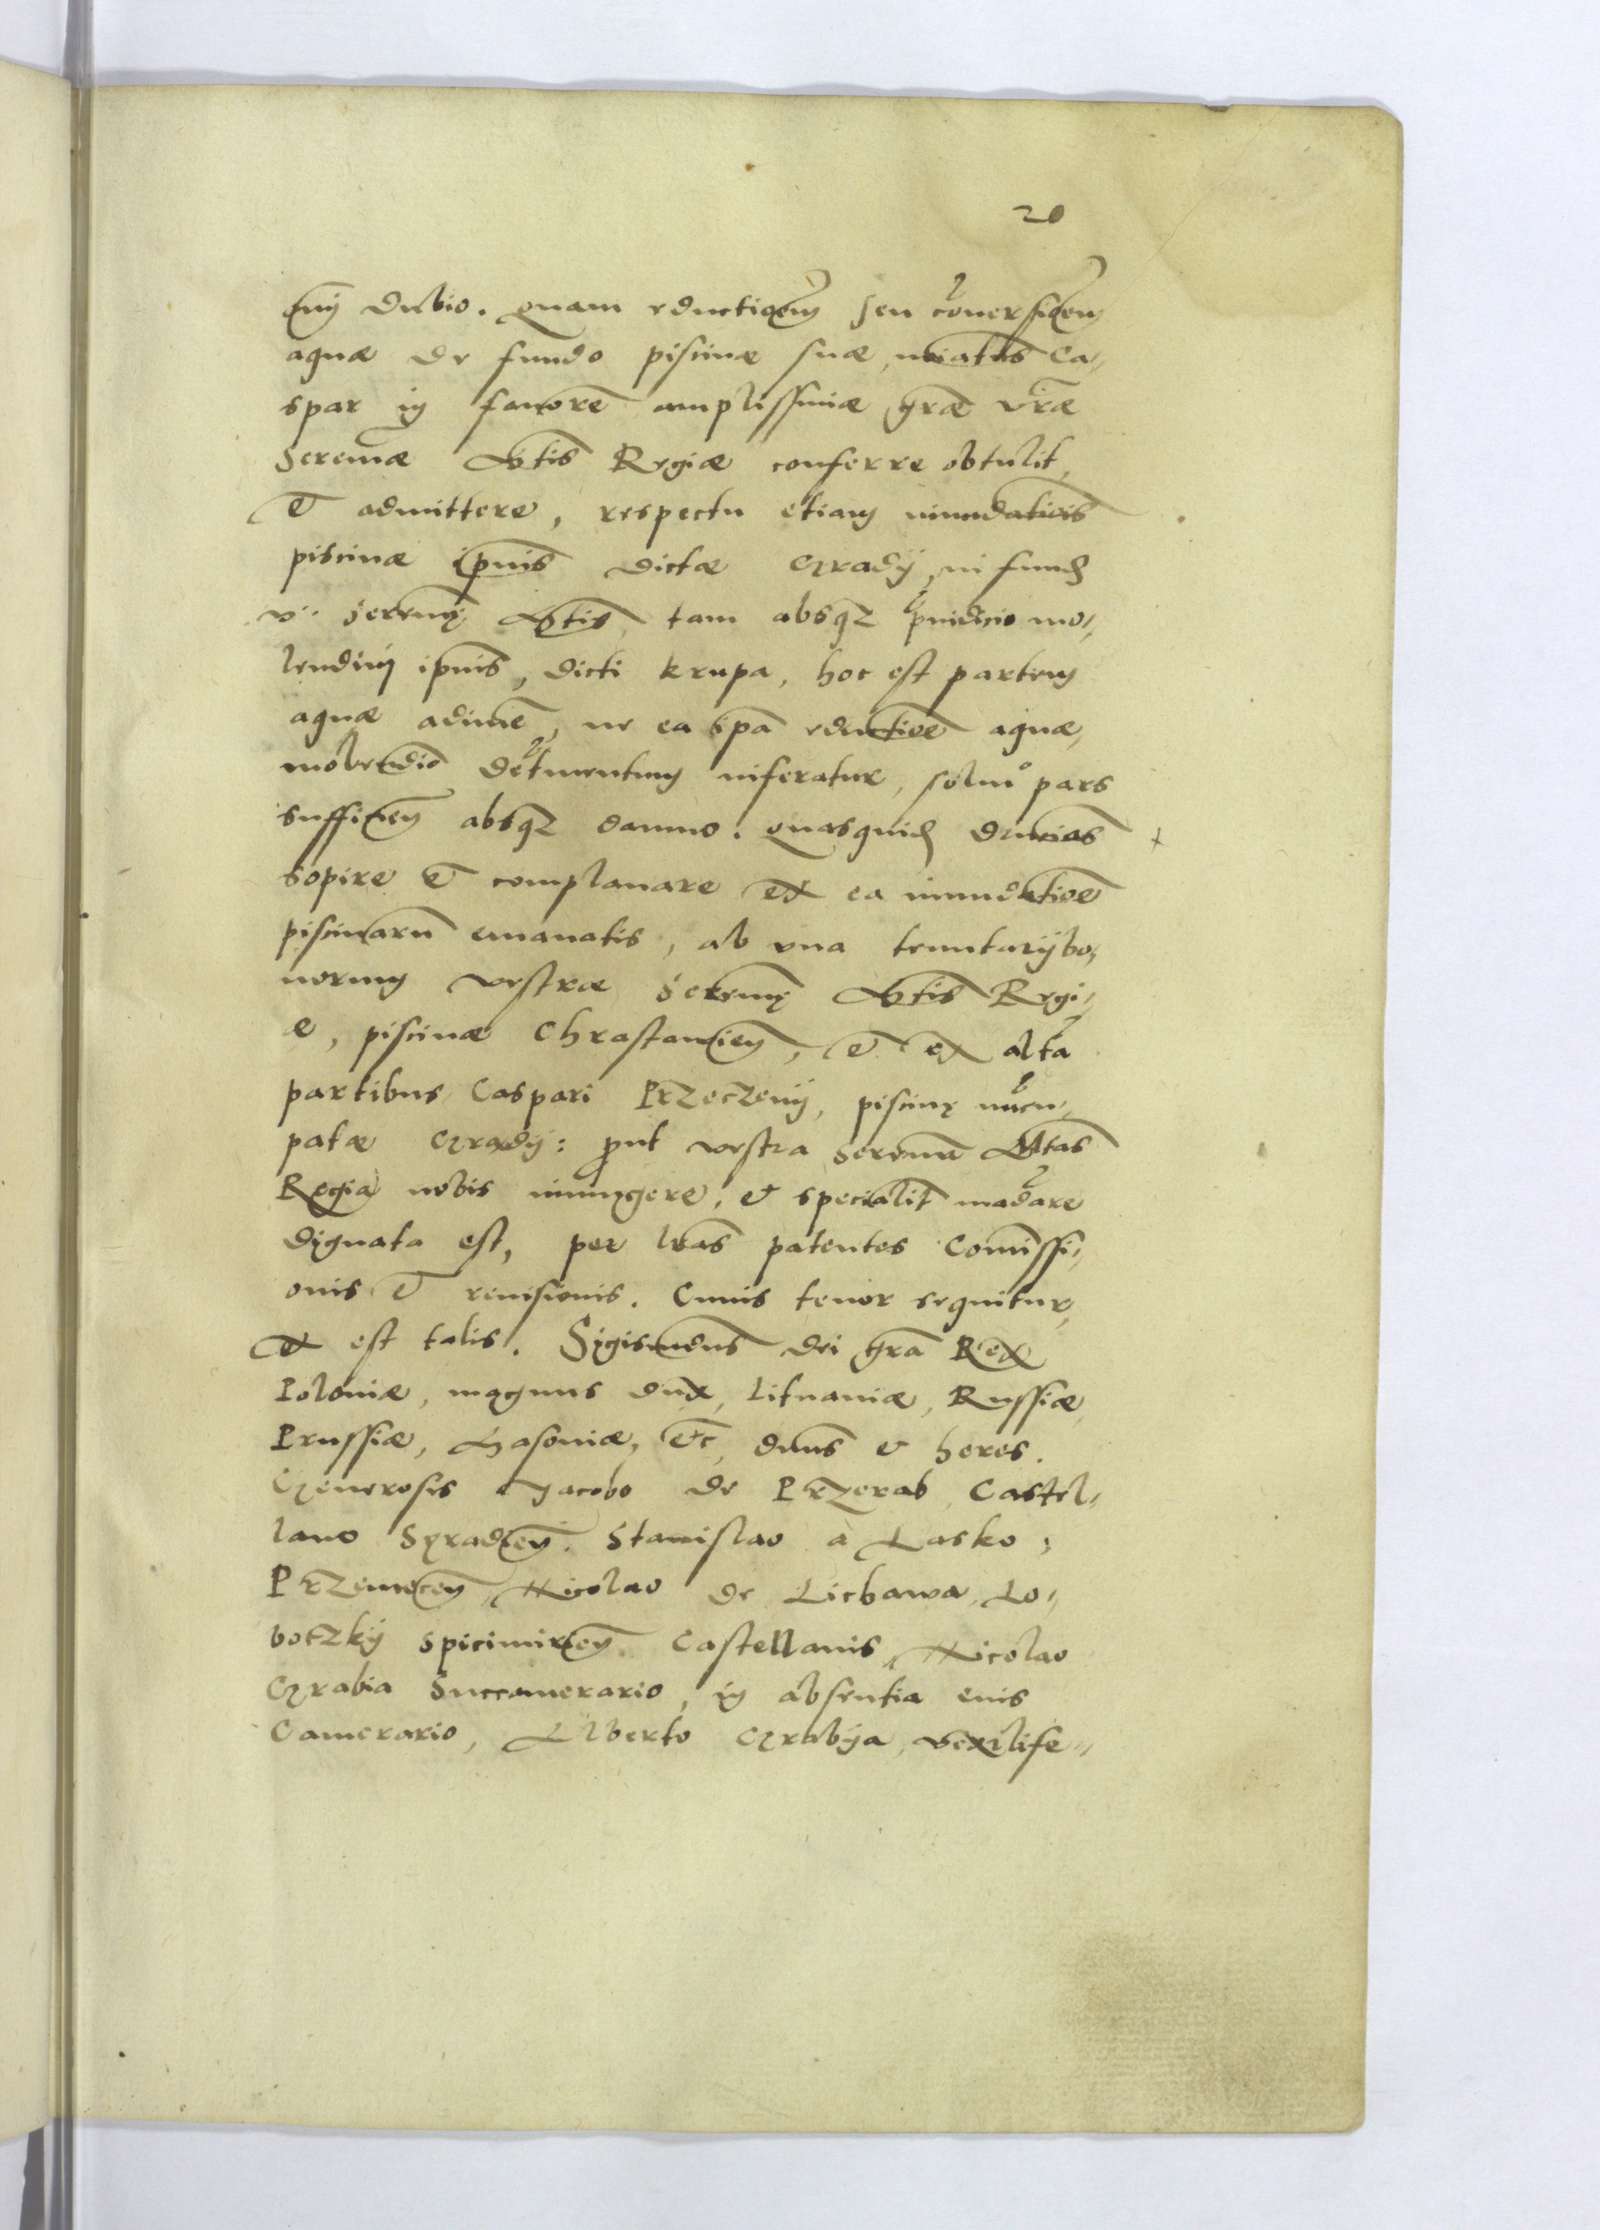 20
dubio. Quam eductiōem seu cōuersiōem
aquæ de fundo piscinæ suæ, Ca-
spar in fauorē amplissimæ grãe vrãe
Serenmæ Mtis Regiæ conferre obtulit,
et admittere, respectu etiam inundatiois
piscinæ ipsius dictæ Grądÿ, in fund
v. Serenmę Mtis, tam absqȝ pruidicio mo-
lendini ipsius, dicti krupa, hoc est partem
aquæ adimē, ne ea ipā eductiōe aquæ,
molendino detrimentum inferatur, solum pars
sufficien absqȝ damno. Quasquid
sopire et complanare ex ea inundatiōe
piscinarū emanatis, ab vna bo-
norum vestræ Serenmę Mtis Regi-
æ, piscinæ Chrastawien, et ex alta
partibus Caspari Przeczenÿ, piscinę nūcu-
patæ Grądÿ: put vestra Serenma Mtas
Regia nobis iniungere, et specialit mādare
dignata est, per lras patentes Comissi-
onis et reuisionis. Cuius tenor sequitur,
et est talis. Sigismūdus dei gra Rex
Poloniæ, magnus dux, Lituaniæ, Russiæ,
Prussiæ, Masouiæ, etc, dnus et heres.
Generosis Jacobo de Przerab, Castel-
lano Syradien. Stanislao à Lasko,
Przemecen, Nicolao de Lichawa, Lo-
botzkÿ spicimirien. Castellanis, Nicolao
Grabia Succamerario, in absentia eius
Camerario, Alberto Grabÿa, vexilife-